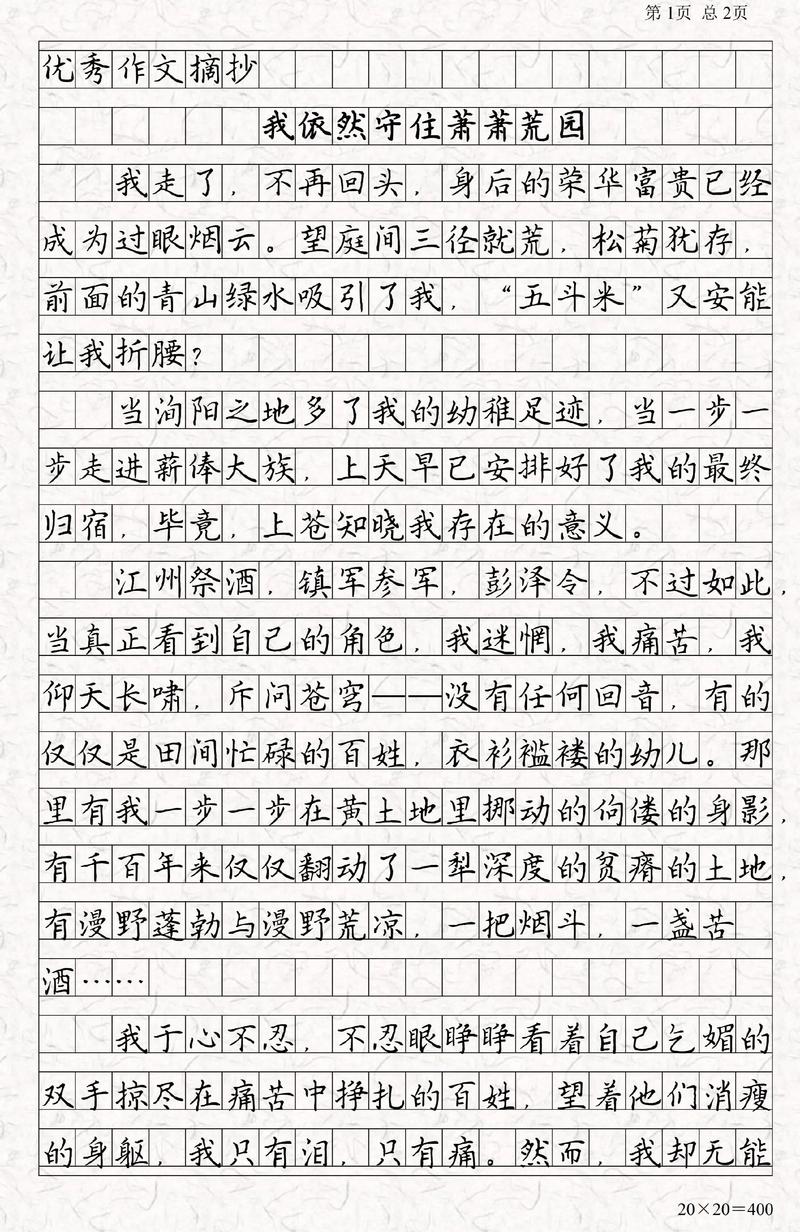 第1页 总2页
优秀作文摘抄
我依然守住萧萧荒园
我走了，不再回头，身后的荣华富贵已经
成为过眼烟云。望庭间三径就荒，松菊犹存，
前面的青山绿水吸引了我，“五斗米”又安能
让我折腰？
当洵阳之地多了我的幼稚足迹，当一步一
步走进薪俸大族，上天早已安排好了我的最终
归宿，毕竟，上苍知晓我存在的意义。
江州祭酒，镇军参军，彭泽令，不过如此，
当真正看到自己的角色，我迷惘，我痛苦，我
仰天长啸，斥问苍穹——没有任何回音，有的
仅仅是田间忙碌的百姓，衣衫褴褛的幼儿。那
里有我一步一步在黄土地里挪动的伛偻的身影，
有千百年来仅仅翻动了一犁深度的贫瘠的土地，
有漫野蓬勃与漫野荒凉，一把烟斗，一盏苦
酒……
我于心不忍，不忍眼睁睁看着自己乞媚的
双手掠尽在痛苦中挣扎的百姓，望着他们消瘦
的身躯，我只有泪，只有痛。然而，我却无能
20×20=400